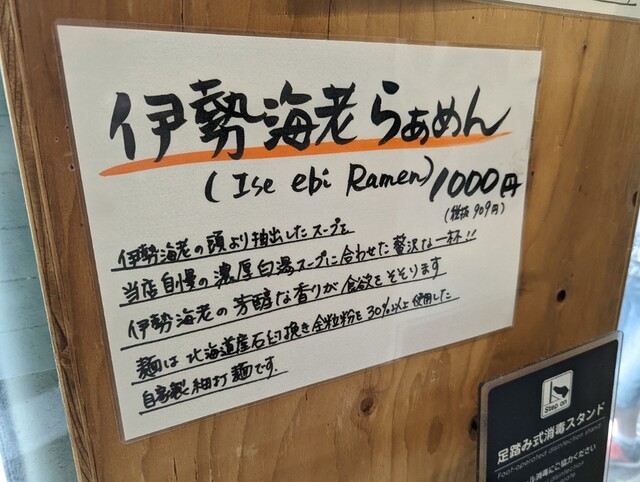 伊勢海老らぁめん
(Ise ebi Ramen) 1000円
(税抜 909円)
伊勢海老の頭より抽出したスープを
当店自慢の濃厚白湯スープに合わせた贅沢な一杯!!
伊勢海老の芳醇な香りが食欲をそそります
麺は北海道産石臼挽き全粒粉を30%以上使用した
自家製細打麺です。
Step on
足踏み式消毒スタンド
Foot-operated disinfection stand
ル消毒にご協力ください
disinfection